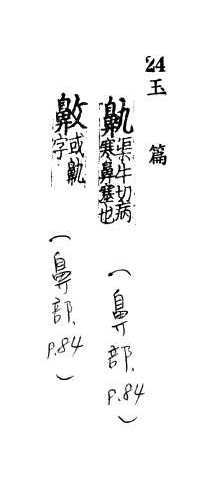 24 玉篇
鼽 渠牛切病
寒鼻塞也
(鼻部. P.84)
或鼽
字
(鼻部. P.84)